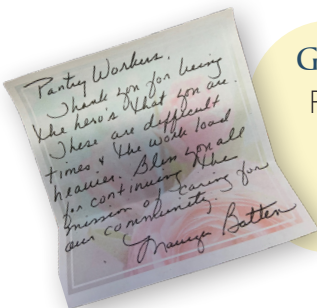 Pantry Workers,
Thank you for being
the hero's that you are.
These are difficult
times & the work load
heavier. Bless you all
for continuing the
mission of caring for
our community.
Batten
G
F